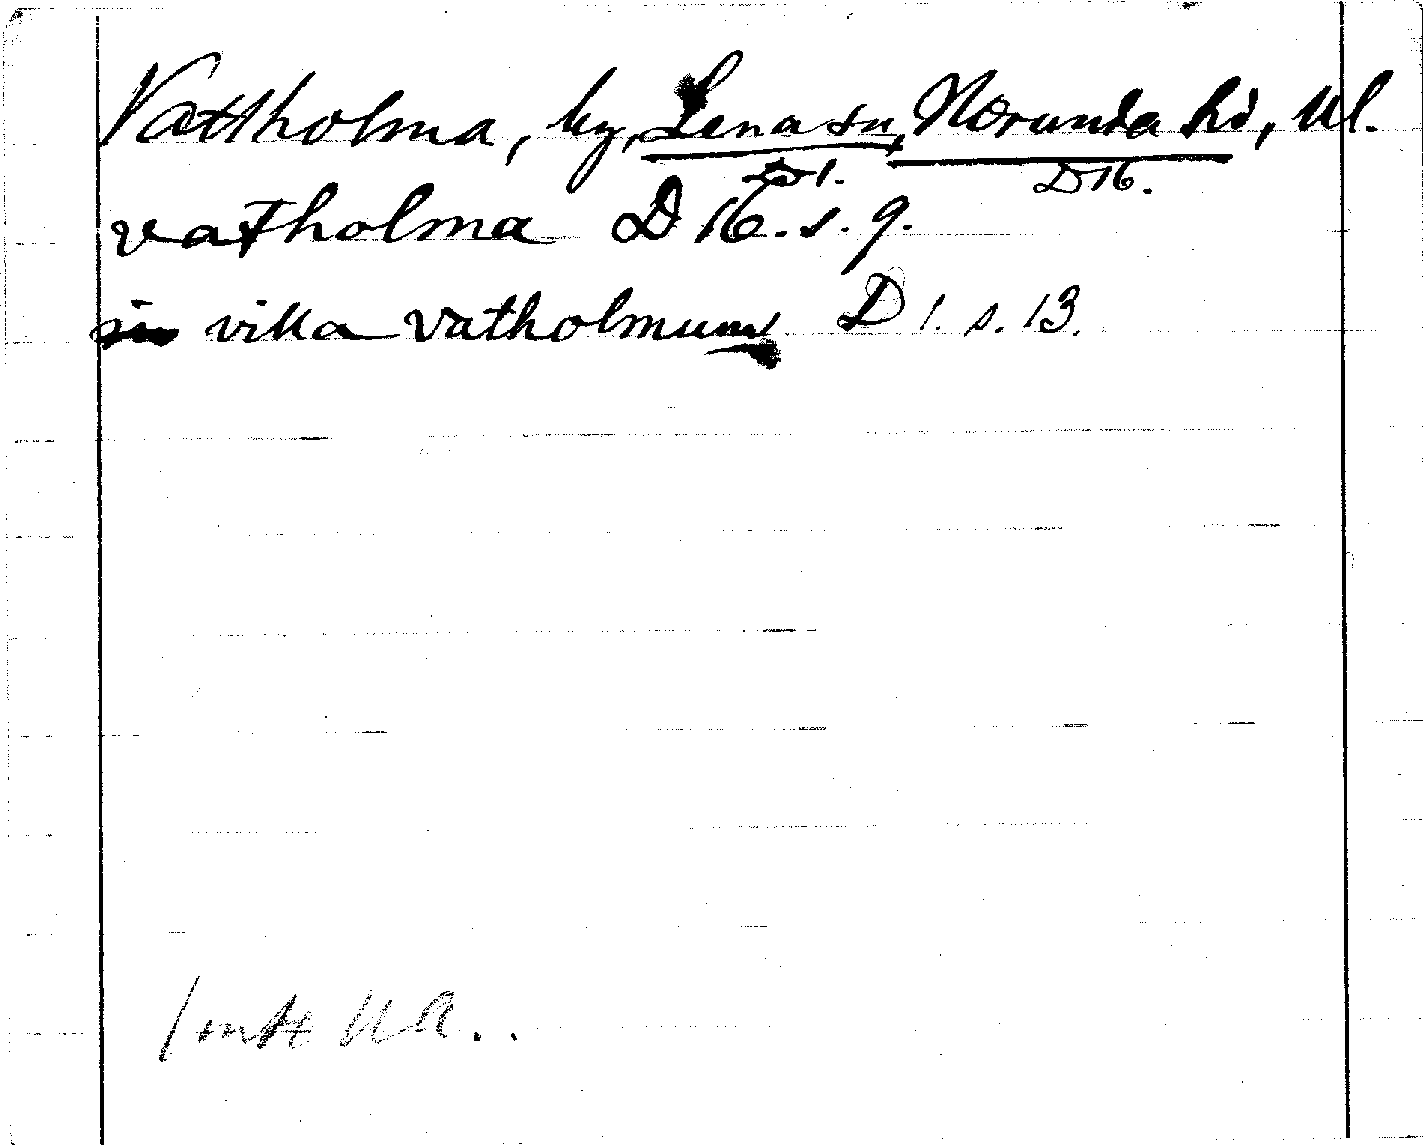 Vattholma, by, Lena sn, Norunda hd, Ul.
D 1. D 16.
vatholma D 16. s. 9.
in villa vatholmum D 1. s. 13.